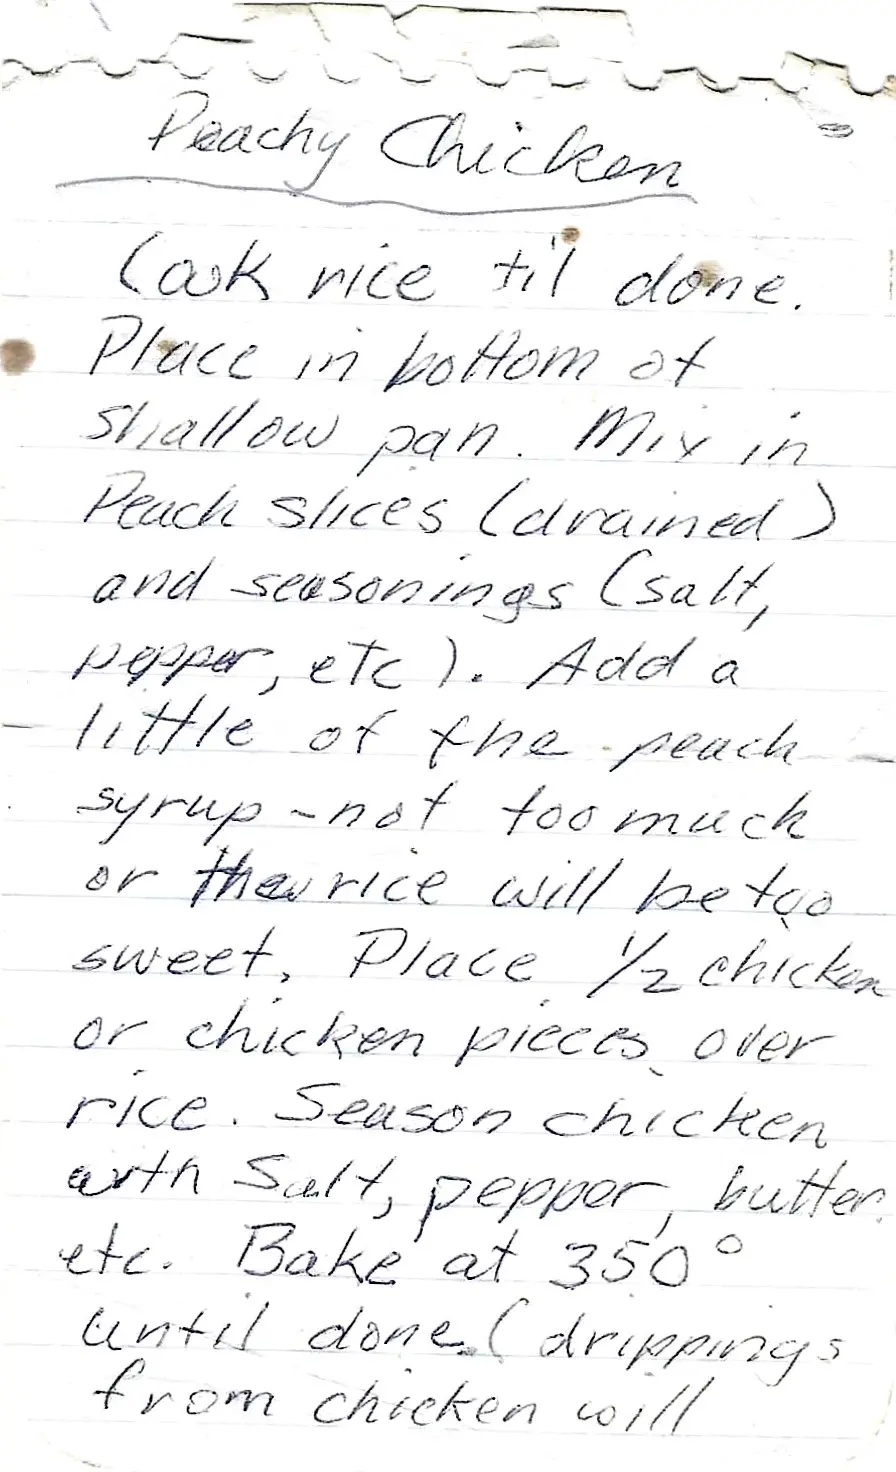 Peachy Chicken
Cook rice til done.
Place in bottom of
shallow pan. Mix in
Peach slices (drained)
and seasonings (salt,
pepper, etc). Add a
little of the peach
syrup - not too much
or the rice will be too
sweet. Place 1/2 chicken
or chicken pieces over
rice. Season chicken
with Salt, pepper, butter
etc. Bake at 350°
until done. (drippings
from chicken will